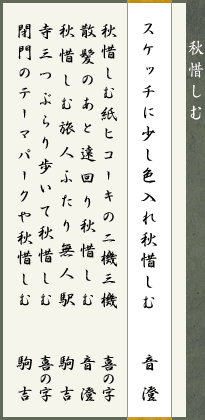 秋惜しむ
スケッチに少し色入れ秋惜しむ 音澄
秋惜しむ紙ヒコーキの二機三機 喜の字
散髪のあと遠回り秋惜しむ 音澄
秋惜しむ旅人ふたり無人駅 駒吉
寺三つぶらり歩いて秋惜しむ 喜の字
閉門のテーマパークや秋惜しむ 駒吉